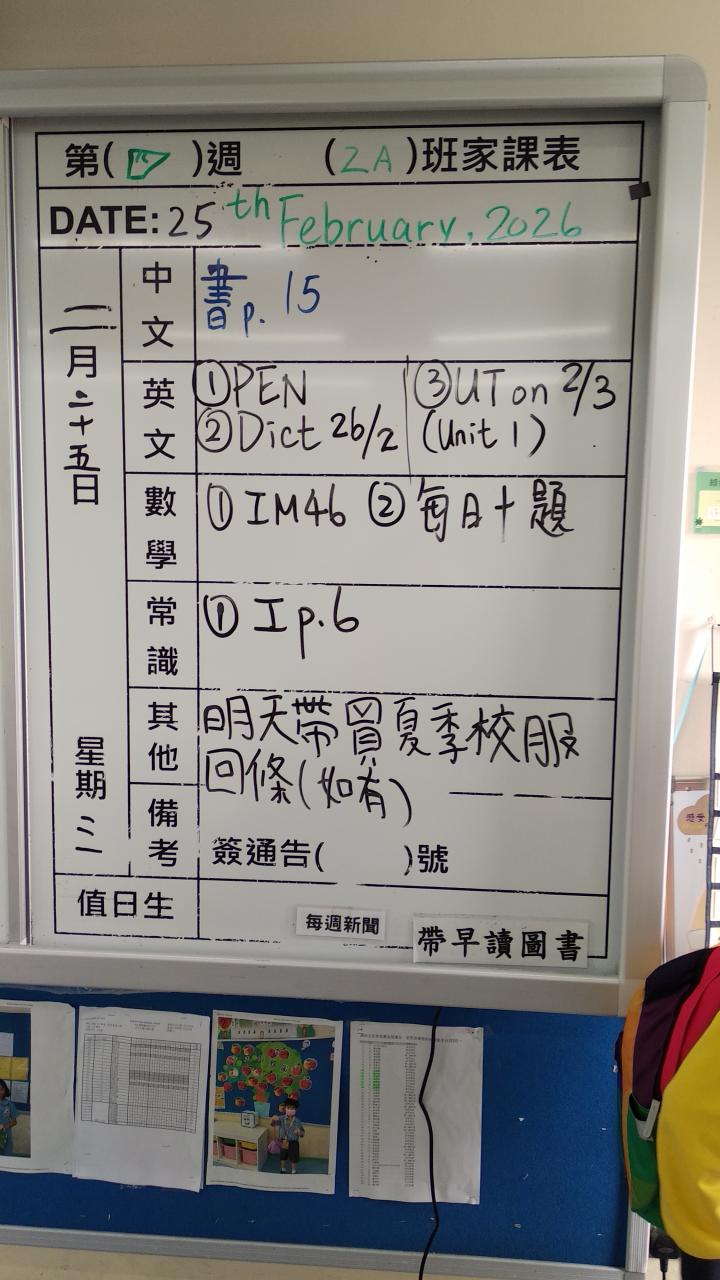 第( )週 (2A)班家課表
DATE: 25th February, 2026
二月二十五日
星期三
中文
書p. 15
英文
①PEN
②Dict 26/2
③UT on 2/3
(Unit 1)
數學
①IM46 ②每日十題
常識
①Ip.6
其他
明天帶買夏季校服
回條(如有)
備考
簽通告( )號
值日生
每週新聞
帶早讀圖書